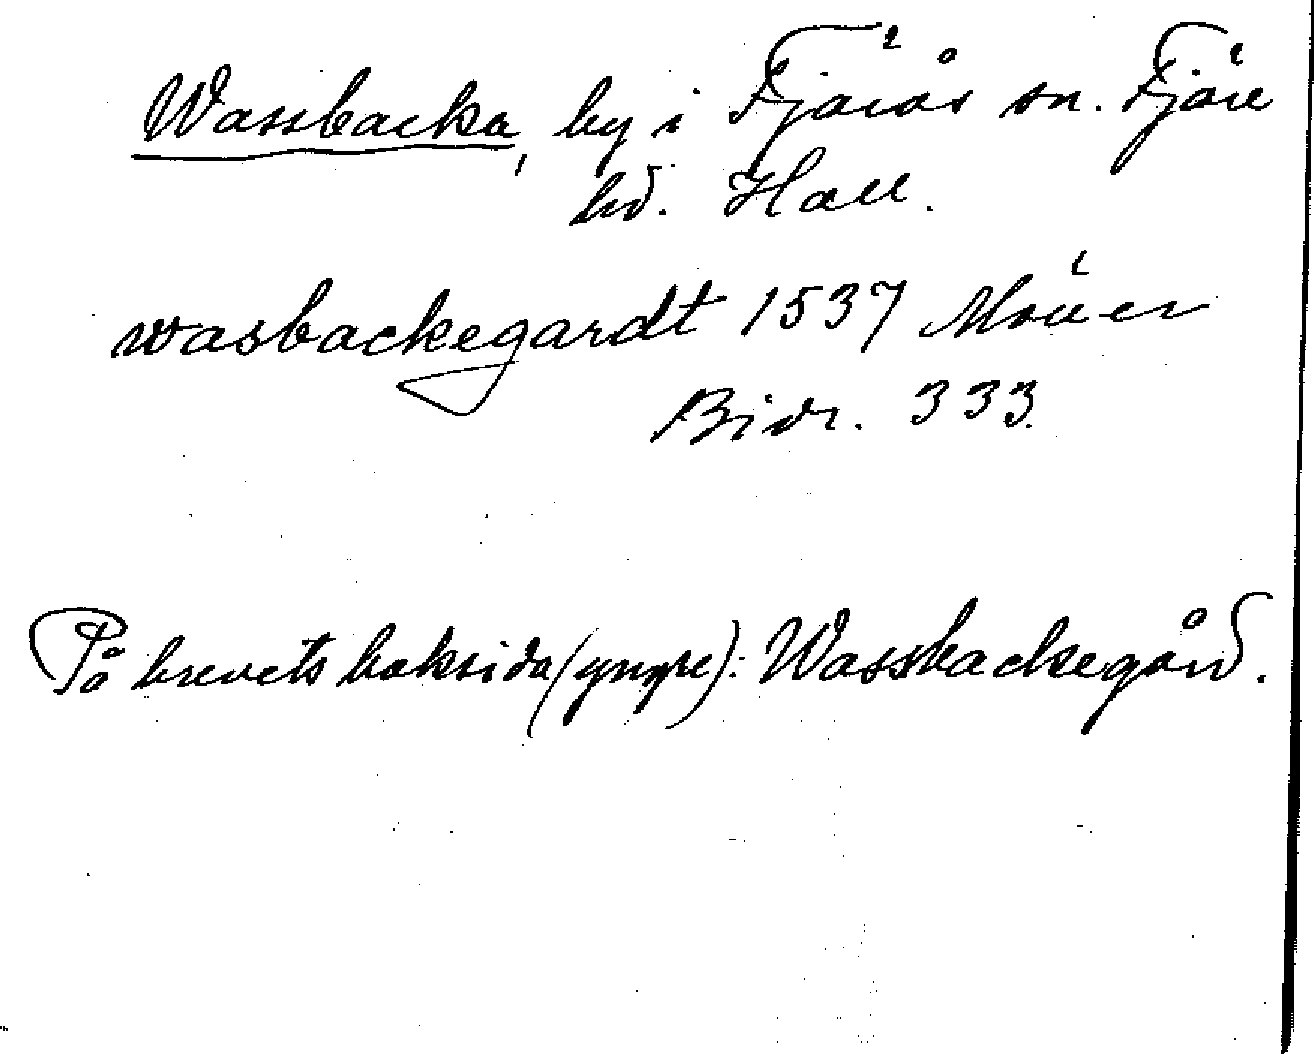 Wassbacka, by i Fjärås sn. Fjäre
hd. Hall.
wasbackegardt 1537
Bidr. 333.
På brevets baksida (yngre): Wassbackegård.